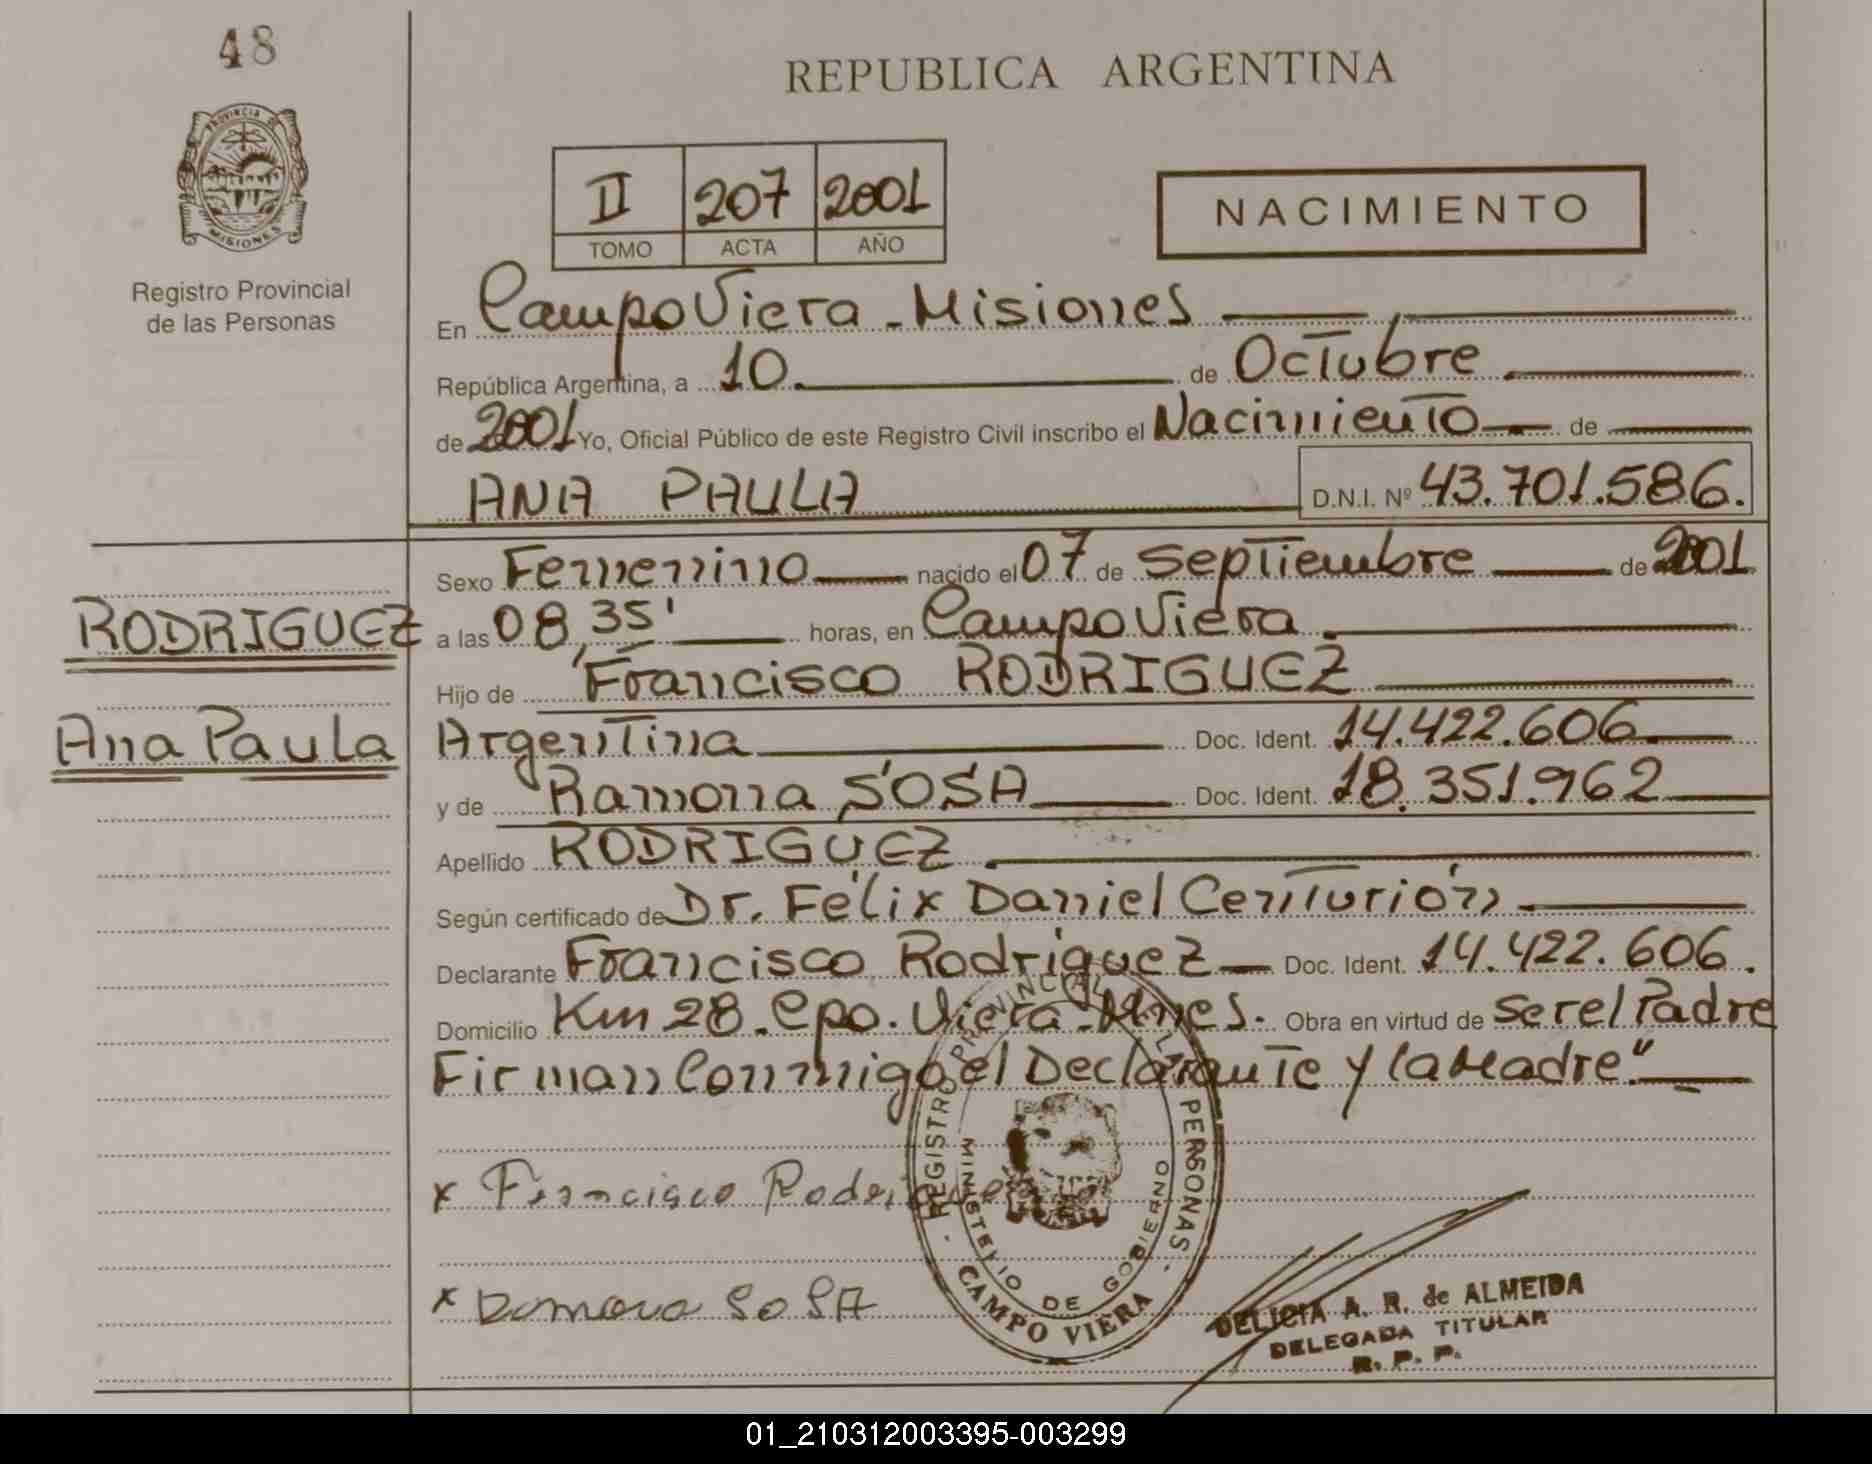 48
REPUBLICA ARGENTINA
PROVINCIA DE
MISIONES
Registro Provincial
de las Personas
II 207 2001
TOMO ACTA AÑO
NACIMIENTO
En Campo Viera - Misiones
República Argentina, a 10. de Octubre
de 2001 Yo, Oficial Público de este Registro Civil inscribo el Nacimiento de
ANA PAULA D.N.I. Nº 43.701.586.
Sexo Femenino nacido el 07 de Septiembre de 2001
RODRIGUEZ
a las 08,35' horas, en Campo Viera.
Hijo de Francisco RODRIGUEZ
Ana Paula
Argentina Doc. Ident. 14.422.606
y de Ramona SOSA Doc. Ident. 18.351.962
Apellido RODRIGUEZ
Según certificado de Dr. Félix Daniel Centurión
Declarante Francisco Rodríguez Doc. Ident. 14.422.606.
Domicilio Km 28. Cpo. Viera - Mnes. Obra en virtud de ser el Padre
Firman Conmigo el Declarante y la Madre"
x Francisco Rodriguez
x Ramona SOSA
REGISTRO PROVINCIAL DE LAS PERSONAS
MINISTERIO DE GOBIERNO
CAMPO VIERA
DELICIA A. R. de ALMEIDA
DELEGADA TITULAR
R. P. P.
01_210312003395-003299